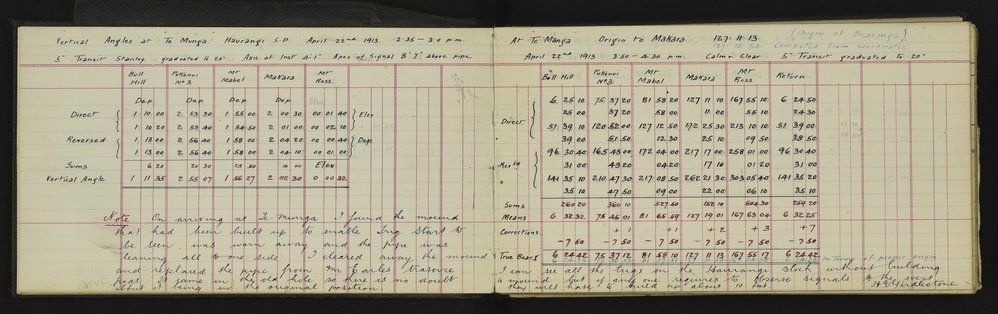 Vertical Angles at Te Munga Haurangi S.D. April 22nd 1913 2.35 - 3.0 p.m.
5" Transit Stanley graduated to 20" Axis of inst 4'1" Apex of Signal 8'7" above pipe
Bull Hill Pokenui No 3. Mt Mabel Makara Mt Ross
Dep Dep Dep Dep Elev
Direct 1 10 00 2 53 30 1 55 00 2 00 30 00 01 40 Elev
1 10 20 2 53 40 1 54 50 2 01 00 00 02 10
Reversed 1 13 00 2 56 40 1 58 00 2 04 20 00 00 40 Dep
1 13 00 2 56 40 1 58 00 2 04 10 00 01 00
Sums 6 20 20 30 25 50 10 00 Elev
Vertical Angle 1 11 35 2 55 07 1 56 27 2 02 30 0 00 32
Note On arriving at Te Munga I found the mound
that had been built up to enable Trig Start to
be seen was worn away and the pipe was
leaning all to one side I cleared away the mound
and replaced the pipe from Mr Earles traverse
pegs. It came in the old hole so there is no doubt
about it being in the original position.
At Te Manga Origin to Makara 127. 11. 13 (Origin of Bearings)
127 10 54 Computed from Coordinates
April 22nd 1913 3.50 - 4.30 p.m. Calm & Clear 5" Transit graduated to 20"
Bull Hill Pokenui No 3. Mt Mabel Makara Mt Ross Return
6 25 10 75 37 20 81 58 20 127 11 10 167 55 10 6 24 50
25 00 37 20 58 00 11 00 56 10 24 30
Direct 51 39 10 120 52 00 127 12 50 172 25 30 213 10 10 51 39 00
39 00 51 50 12 30 25 10 09 50 38 50
96 30 40 165 43 00 172 04 00 217 17 00 258 01 00 96 30 40
Rev 31 00 43 20 04 20 17 10 01 20 31 00
141 35 10 210 47 30 217 08 50 262 21 30 303 05 40 141 35 20
35 10 47 50 09 00 22 00 06 10 35 10
Sums 260 20 360 10 527 50 152 10 504 30 259 20
Means 6 32 32 75 45 01 81 65 59 127 19 01 167 63 04 6 32 25
Corrections + 1 + 1 + 2 + 3 + 7
- 7 50 - 7 50 - 7 50 - 7 50 - 7 50 - 7 50
True Bears 6 24 42 75 37 12 81 58 10 127 11 13 167 55 17 6 24 42
in Terms of proper origin
I can see all the trigs on the Haurangi Block without building
a mound but if any one required to observe signals to the west
they will have to build up about 10 feet
H E Girdlestone